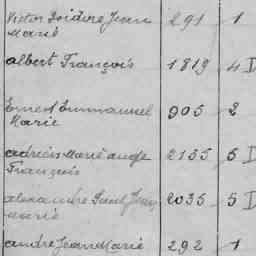 Victor Isidore Jean 291 1
Marie
albert François 1819 4 D
Ernest Emmanuel 905 2
Marie
adrien Marie ange 2155 5 D
François
alexandre Paul Jean 2035 5 D
Marie
andré Jean Marie 292 1